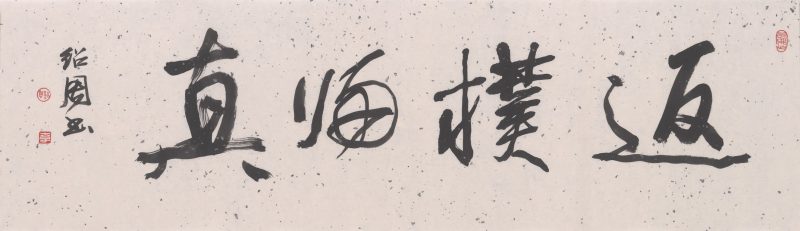 返樸歸真
紹周書